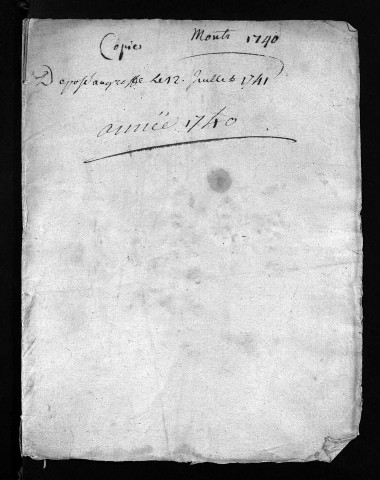 Copie Monts 1740
Deposé au greffe Le 12. Juillet 1741
année 1740